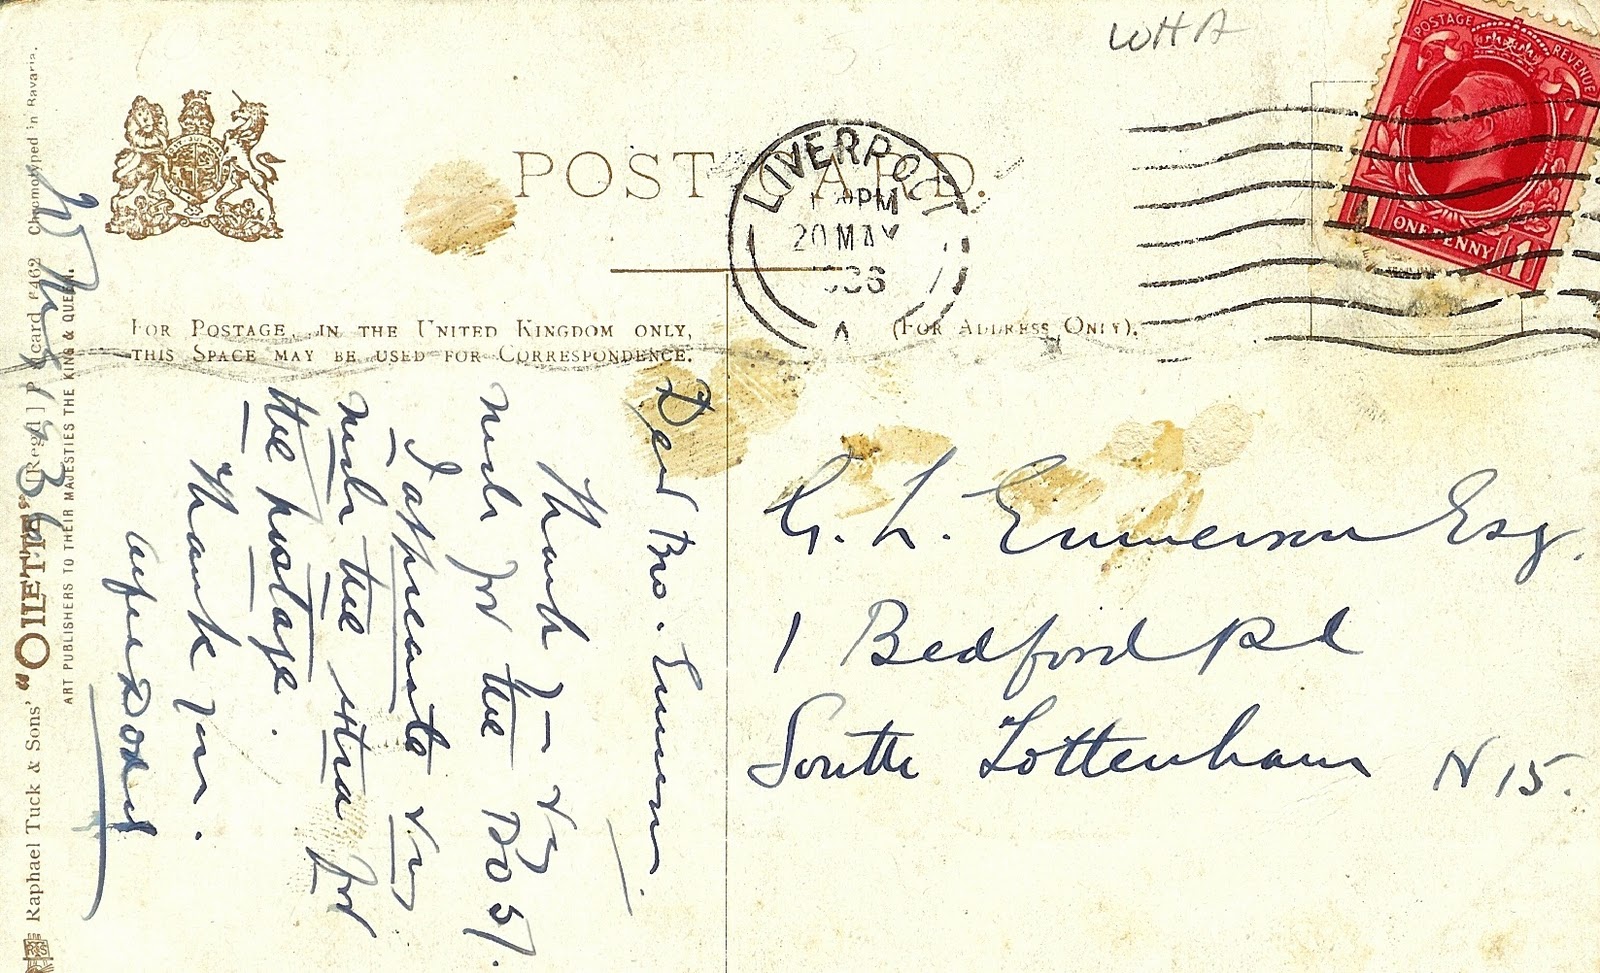 WHA
POSTAGE REVENUE
ONE PENNY 1
POST CARD.
LIVERPOOL
PM
20 MAY
36
FOR POSTAGE IN THE UNITED KINGDOM ONLY,
THIS SPACE MAY BE USED FOR CORRESPONDENCE.
(FOR ADDRESS ONLY).
Dear Bro. Emmerson.
Thank you very
much for the P.O 5/.
I appreciate very
much the extra for
the postage.
Thank you.
G. L. Emmerson Esq.
1 Bedford Rd
South Tottenham N 15.
Raphael Tuck & Sons' "OILETTE" [Regd.] Postcard 6462 Chromotyped in Bavaria.
ART PUBLISHERS TO THEIR MAJESTIES THE KING & QUEEN.